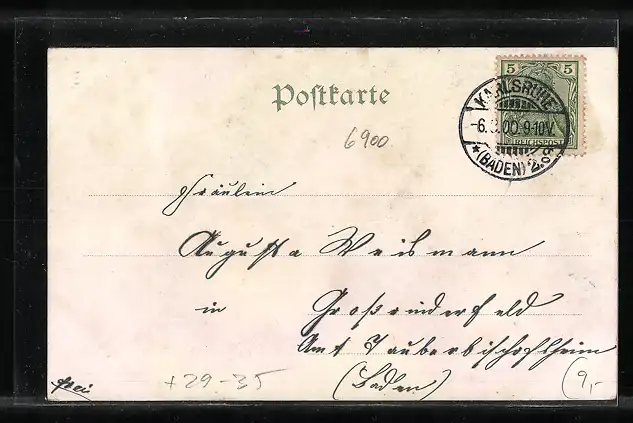 Postkarte
5 5
REICHSPOST
KARLSRUHE
-6. .00.9-10V.
* (BADEN) 2.
6900.
Fräulein
Augusta Weismann
in Großrinderfeld
Amt Tauberbischofsheim
(Baden)
+29-35
(9,-